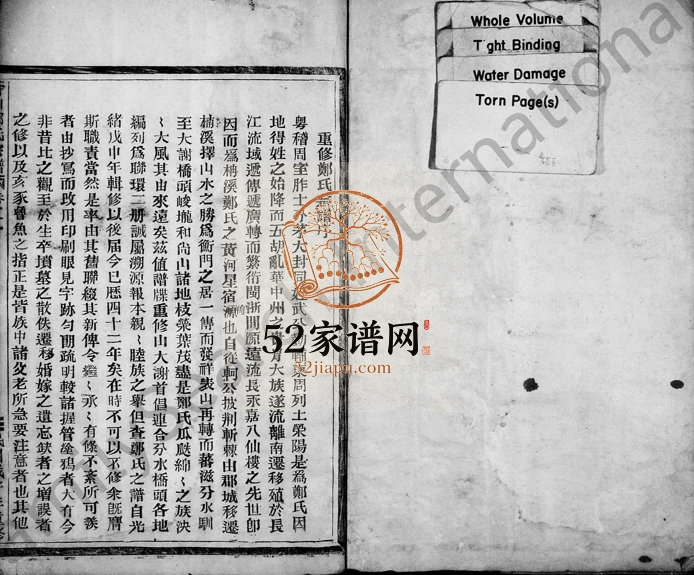 Whole Volume
Tight Binding
Water Damage
Torn Page(s)
重修鄭氏宗譜序
粵稽周室胙土分茅大封同姓武公輔東周列土滎陽是為鄭氏因
地得姓之始降而五胡亂華中州之大族遂流離南遷移殖於長
江流域遞傳遞廣轉而繁衍閩浙間源遠流長永嘉八仙樓之先世卽
因而為楠溪鄭氏之黃河星宿海也自從柯公披荆斬棘由郡城移遷
楠溪擇山水之勝為衡門之居一傳而發祥裝山再轉而蕃滋分水馴
至大謝橋頭峻壠和尚山諸地枝榮葉茂盡是鄭氏瓜瓞綿〻之族泱
〻大風其由來遠矣茲值譜牒重修山大謝首倡連合分水橋頭各地
編列為聯環二册誠屬溯源報本親〻睦族之舉但查鄭氏之譜自光
緒戊申年輯修以後屆今已歷四十二年矣在時不可以不修余旣膺
斯職責當然是率由其舊聯綴其新傳令繼〻承〻有條不紊所可羨
者由抄寫而改用印刷眼見字跡勻朗疏明較諸握管塗鴉者大有今
非昔比之觀至於生卒墳墓之散佚遷移婚嫁之遺忘缺者之增誤者
之修以及亥豕魯魚之指正是皆族中諸父老所急要注意者也其他
52家谱网
52jiapu.com